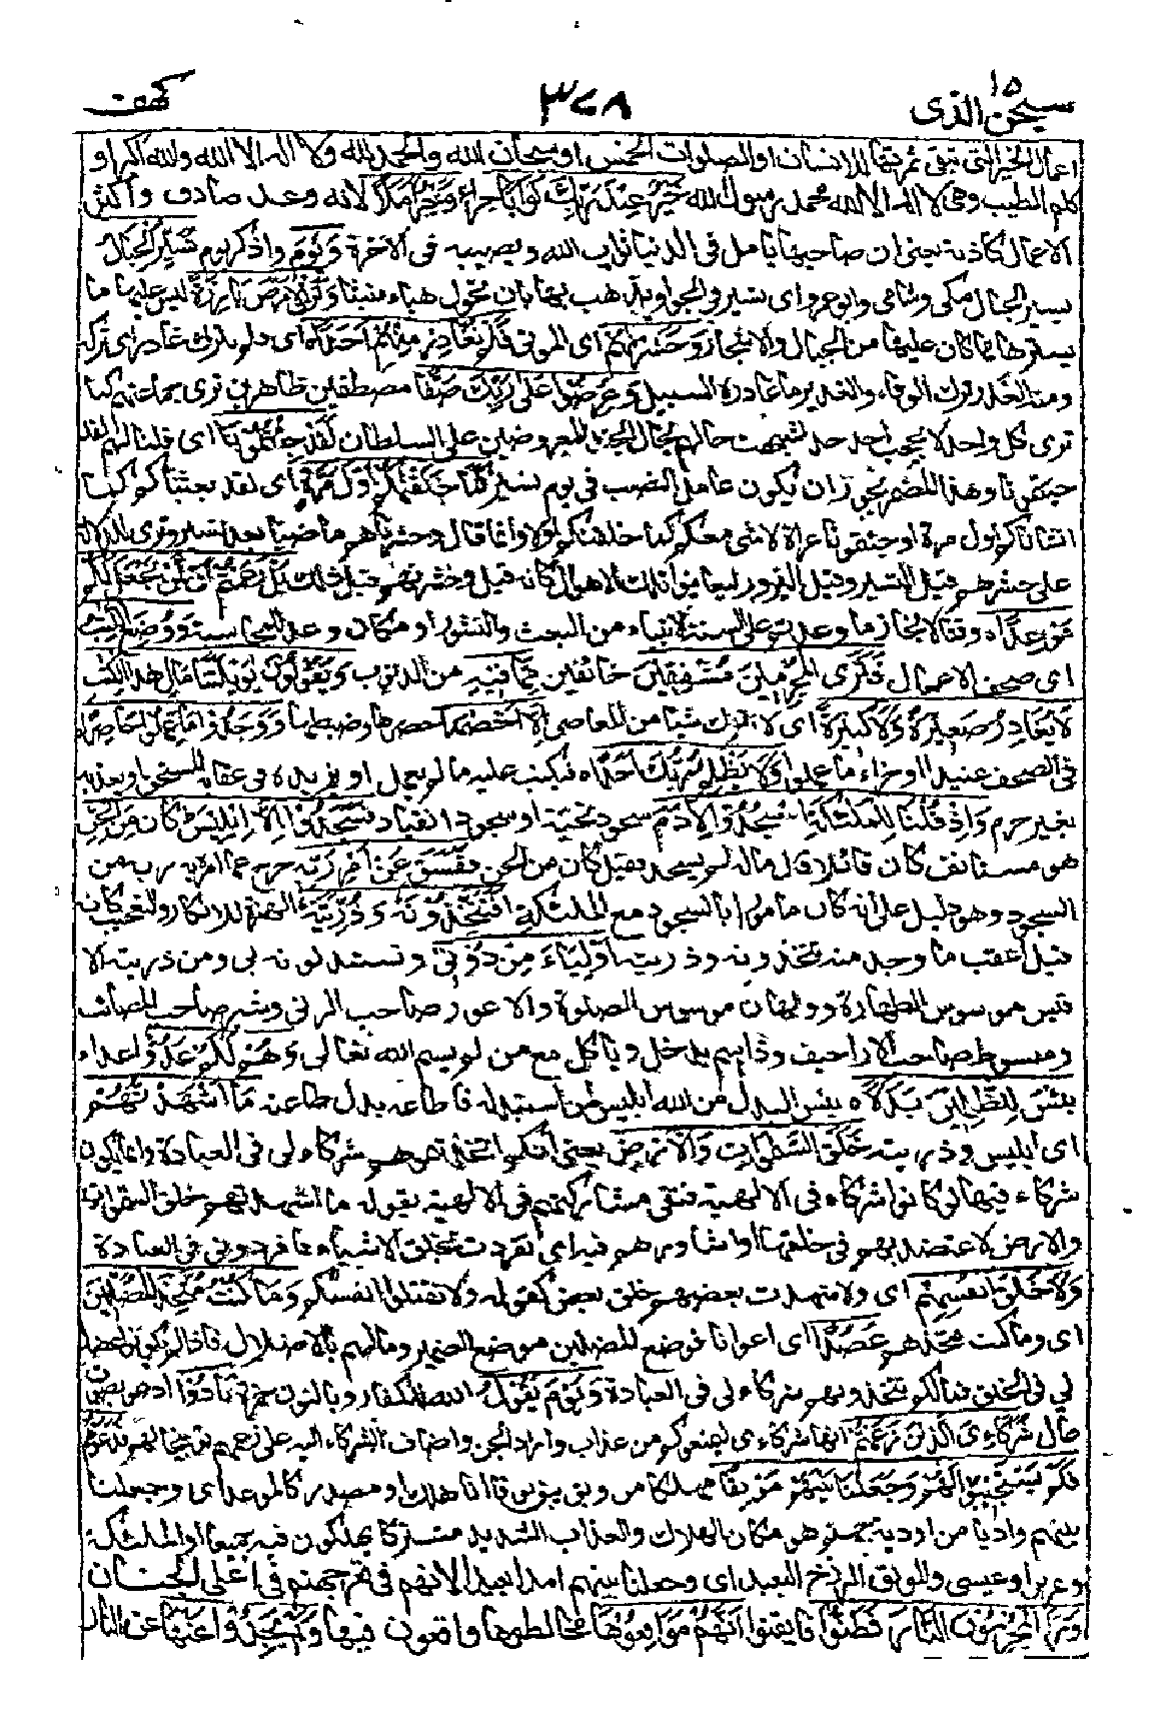 سبحن الذى ١٥
٣٧٨
كهف
اعمال الخير التى تبقى ثمرتها للانسان او الصلوات الخمس او سبحان الله والحمد لله ولا اله الا الله والله اكبر او
كلم الطيب وهى لا اله الا الله محمد رسول الله خَيْرٌ عِنْدَ رَبِّكَ ثَوَابًا جزاء وَخَيْرٌ اَمَلًا لانه وعد صادق واكثر
الاعمال كاذبة يعنى ان صاحبها يامل فى الدنيا ثواب الله ويصيبه فى الآخرة وَيَوْمَ واذكر يوم نُسَيِّرُ الْجِبَالَ
يسير الجبال مكى وشامى وابو عمرو اى تسير فى الجو او يذهب بها بان تجعل هباء منبثا وَتَرَى الْاَرْضَ بَارِزَةً ليس عليها ما
يسترها مما كان عليها من الجبال والاشجار وَحَشَرْنٰهُمْ اى الموتى فَلَمْ نُغَادِرْ مِنْهُمْ اَحَدًا اى ولم نترك غادره اى تركه
ومنه الغدر ترك الوفاء والغدير ما غادره السيل وَعُرِضُوْا عَلٰى رَبِّكَ صَفًّا مصطفين ظاهرين ترى جماعتهم كما
ترى كل واحد لا يحجب احد احدا شبهت حالهم بحال الجند المعروضين على السلطان لَقَدْ جِئْتُمُوْنَا اى قلنا لهم لقد
جئتمونا وهذا المضمر يجوز ان يكون عامل النصب فى يوم نسير كَمَا خَلَقْنٰكُمْ اَوَّلَ مَرَّةٍ اى لقد بعثناكم كما
انشاناكم اول مرة او جئتمونا عراة لا شئ معكم كما خلقنكم اولا وانما قال وحشرناهم ماضيا بعد نسير وترى للدلالة
على حشرهم قبل التسيير وقبل البروز ليعاينوا تلك الاهوال كانه قيل وحشرنهم قبل ذلك بَلْ زَعَمْتُمْ اَلَّنْ نَّجْعَلَ لَكُمْ
مَّوْعِدًا وقتا لانجاز ما وعدتم على السنة الانبياء من البعث والنشور او مكان وعد للمحاسبة وَوُضِعَ الْكِتٰبُ
اى صحف الاعمال فَتَرَى الْمُجْرِمِيْنَ مُشْفِقِيْنَ خائفين مِمَّا فِيْهِ من الذنوب وَيَقُوْلُوْنَ يٰوَيْلَتَنَا مَالِ هٰذَا الْكِتٰبِ
لَا يُغَادِرُ صَغِيْرَةً وَّلَا كَبِيْرَةً اى لا يترك شيئا من المعاصى اِلَّا اَحْصٰىهَا حصرها وضبطها وَوَجَدُوْا مَا عَمِلُوْا حَاضِرًا
فى الصحف عتيدا او جزاء ما عملوا وَلَا يَظْلِمُ رَبُّكَ اَحَدًا فيكتب عليه ما لم يعمل او يزيده فى عقابه المستحق او يعذبه
بغير جرم وَاِذْ قُلْنَا لِلْمَلٰٓئِكَةِ اسْجُدُوْا لِاٰدَمَ سجود تحية او سجود انقياد فَسَجَدُوْٓا اِلَّآ اِبْلِيْسَ كَانَ مِنَ الْجِنِّ
هو مستانف كان قائلا قال ماله لم يسجد فقيل كان من الجن فَفَسَقَ عَنْ اَمْرِ رَبِّهٖ خرج عما امره به ربه من
السجود وهو دليل على انه كان مامورا بالسجود مع الملئكة اَفَتَتَّخِذُوْنَهٗ وَذُرِّيَّتَهٗ الهمزة للانكار والتعجب كانه
قيل اعقب ما وجد منه تتخذونه وذريته اَوْلِيَآءَ مِنْ دُوْنِىْ وتستبدلونه بى ومن ذريته لا
قيس موسوس الطهارة وولهان موسوس الصلوة والاعور صاحب الزنى وبثر صاحب المصائب
ومسوط صاحب الاراجيف وداسم يدخل وياكل مع من لم يسم الله تعالى وَهُمْ لَكُمْ عَدُوٌّ اعداء
بِئْسَ لِلظّٰلِمِيْنَ بَدَلًا بئس البدل من الله ابليس لمن استبدله فاطاعه بدل طاعته مَآ اَشْهَدْتُّهُمْ
اى ابليس وذريته خَلْقَ السَّمٰوٰتِ وَالْاَرْضِ يعنى انكم اتخذتموهم شركاء لى فى العبادة وانما يكونون
شركاء فيها لو كانوا شركاء فى الالهية فنفى مشاركتهم فى الالهية بقوله ما اشهدتهم خلق السموات
والارض لاعتضد بهم فى خلقها او اشاورهم فيه اى تفردت بخلق الاشياء فافردونى فى العبادة
وَلَا خَلْقَ اَنْفُسِهِمْ اى ولا اشهدت بعضهم خلق بعض كقوله ولا تقتلوا انفسكم وَمَا كُنْتُ مُتَّخِذَ الْمُضِلِّيْنَ
اى وما كنت متخذهم عَضُدًا اى اعوانا فوضع المضلين موضع الضمير ذما لهم بالاضلال فاذا لم يكونوا عضدا
لى فى الخلق فما لكم تتخذونهم شركاء لى فى العبادة وَيَوْمَ يَقُوْلُ الله للكفار وبالنون حمزة نَادُوْا ادعوا بصوت
عال شُرَكَآءِىَ الَّذِيْنَ زَعَمْتُمْ انها شركاءى ليمنعوكم من عذابى واراد الجن واضاف الشركاء اليه على زعمهم توبيخا لهم فَدَعَوْهُمْ
فَلَمْ يَسْتَجِيْبُوْا لَهُمْ وَجَعَلْنَا بَيْنَهُمْ مَّوْبِقًا مهلكا من وبق يوبق وبقا اذا هلك او مصدر كالموعد اى وجعلنا
بينهم واديا من اودية جهنم هو مكان الهلاك والعذاب الشديد مشتركا يهلكون فيه جميعا او الملئكة
وعزيرا وعيسى والموبق البرزخ البعيد اى وجعلنا بينهم امدا بعيدا لانهم فى قعر جهنم وهم فى اعلى الجنان
وَرَاَ الْمُجْرِمُوْنَ النَّارَ فَظَنُّوْا فايقنوا اَنَّهُمْ مُّوَاقِعُوْهَا مخالطوها واقعون فيها وَلَمْ يَجِدُوْا عَنْهَا عن النار